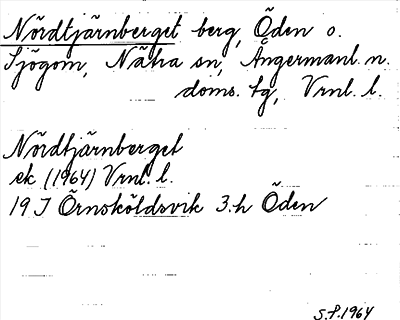 Nördtjärnberget berg, Öden o.
Sjögom, Nätra sn, Ångermanl. n.
doms. tg, Vrnl. l.
Nördtjärnberget
ek (1964) Vrnl. l.
19 J Örnsköldsvik 3.h Öden
S.P.1964